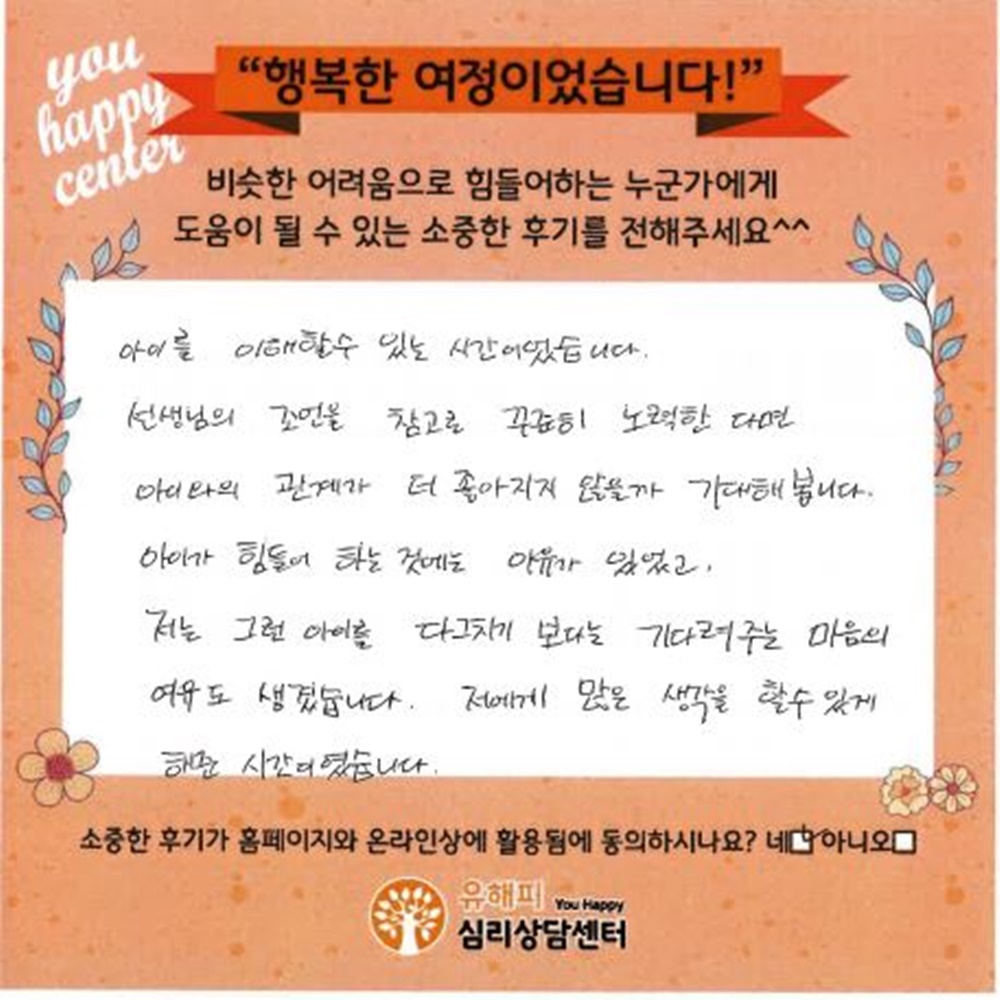 you
happy
center
“행복한 여정이었습니다!”
비슷한 어려움으로 힘들어하는 누군가에게
도움이 될 수 있는 소중한 후기를 전해주세요^^
아이를 이해할수 있는 시간이었습니다.
선생님의 조언을 참고로 꾸준히 노력한 다면
아이와의 관계가 더 좋아지지 않을까 기대해 봅니다.
아이가 힘들어 하는 것에는 이유가 있었고,
저는 그런 아이를 다그치기 보다는 기다려주는 마음의
여유도 생겼습니다. 저에게 많은 생각을 할수 있게
해준 시간이였습니다.
소중한 후기가 홈페이지와 온라인상에 활용됨에 동의하시나요? 네☑ 아니오☐
유해피 You Happy
심리상담센터